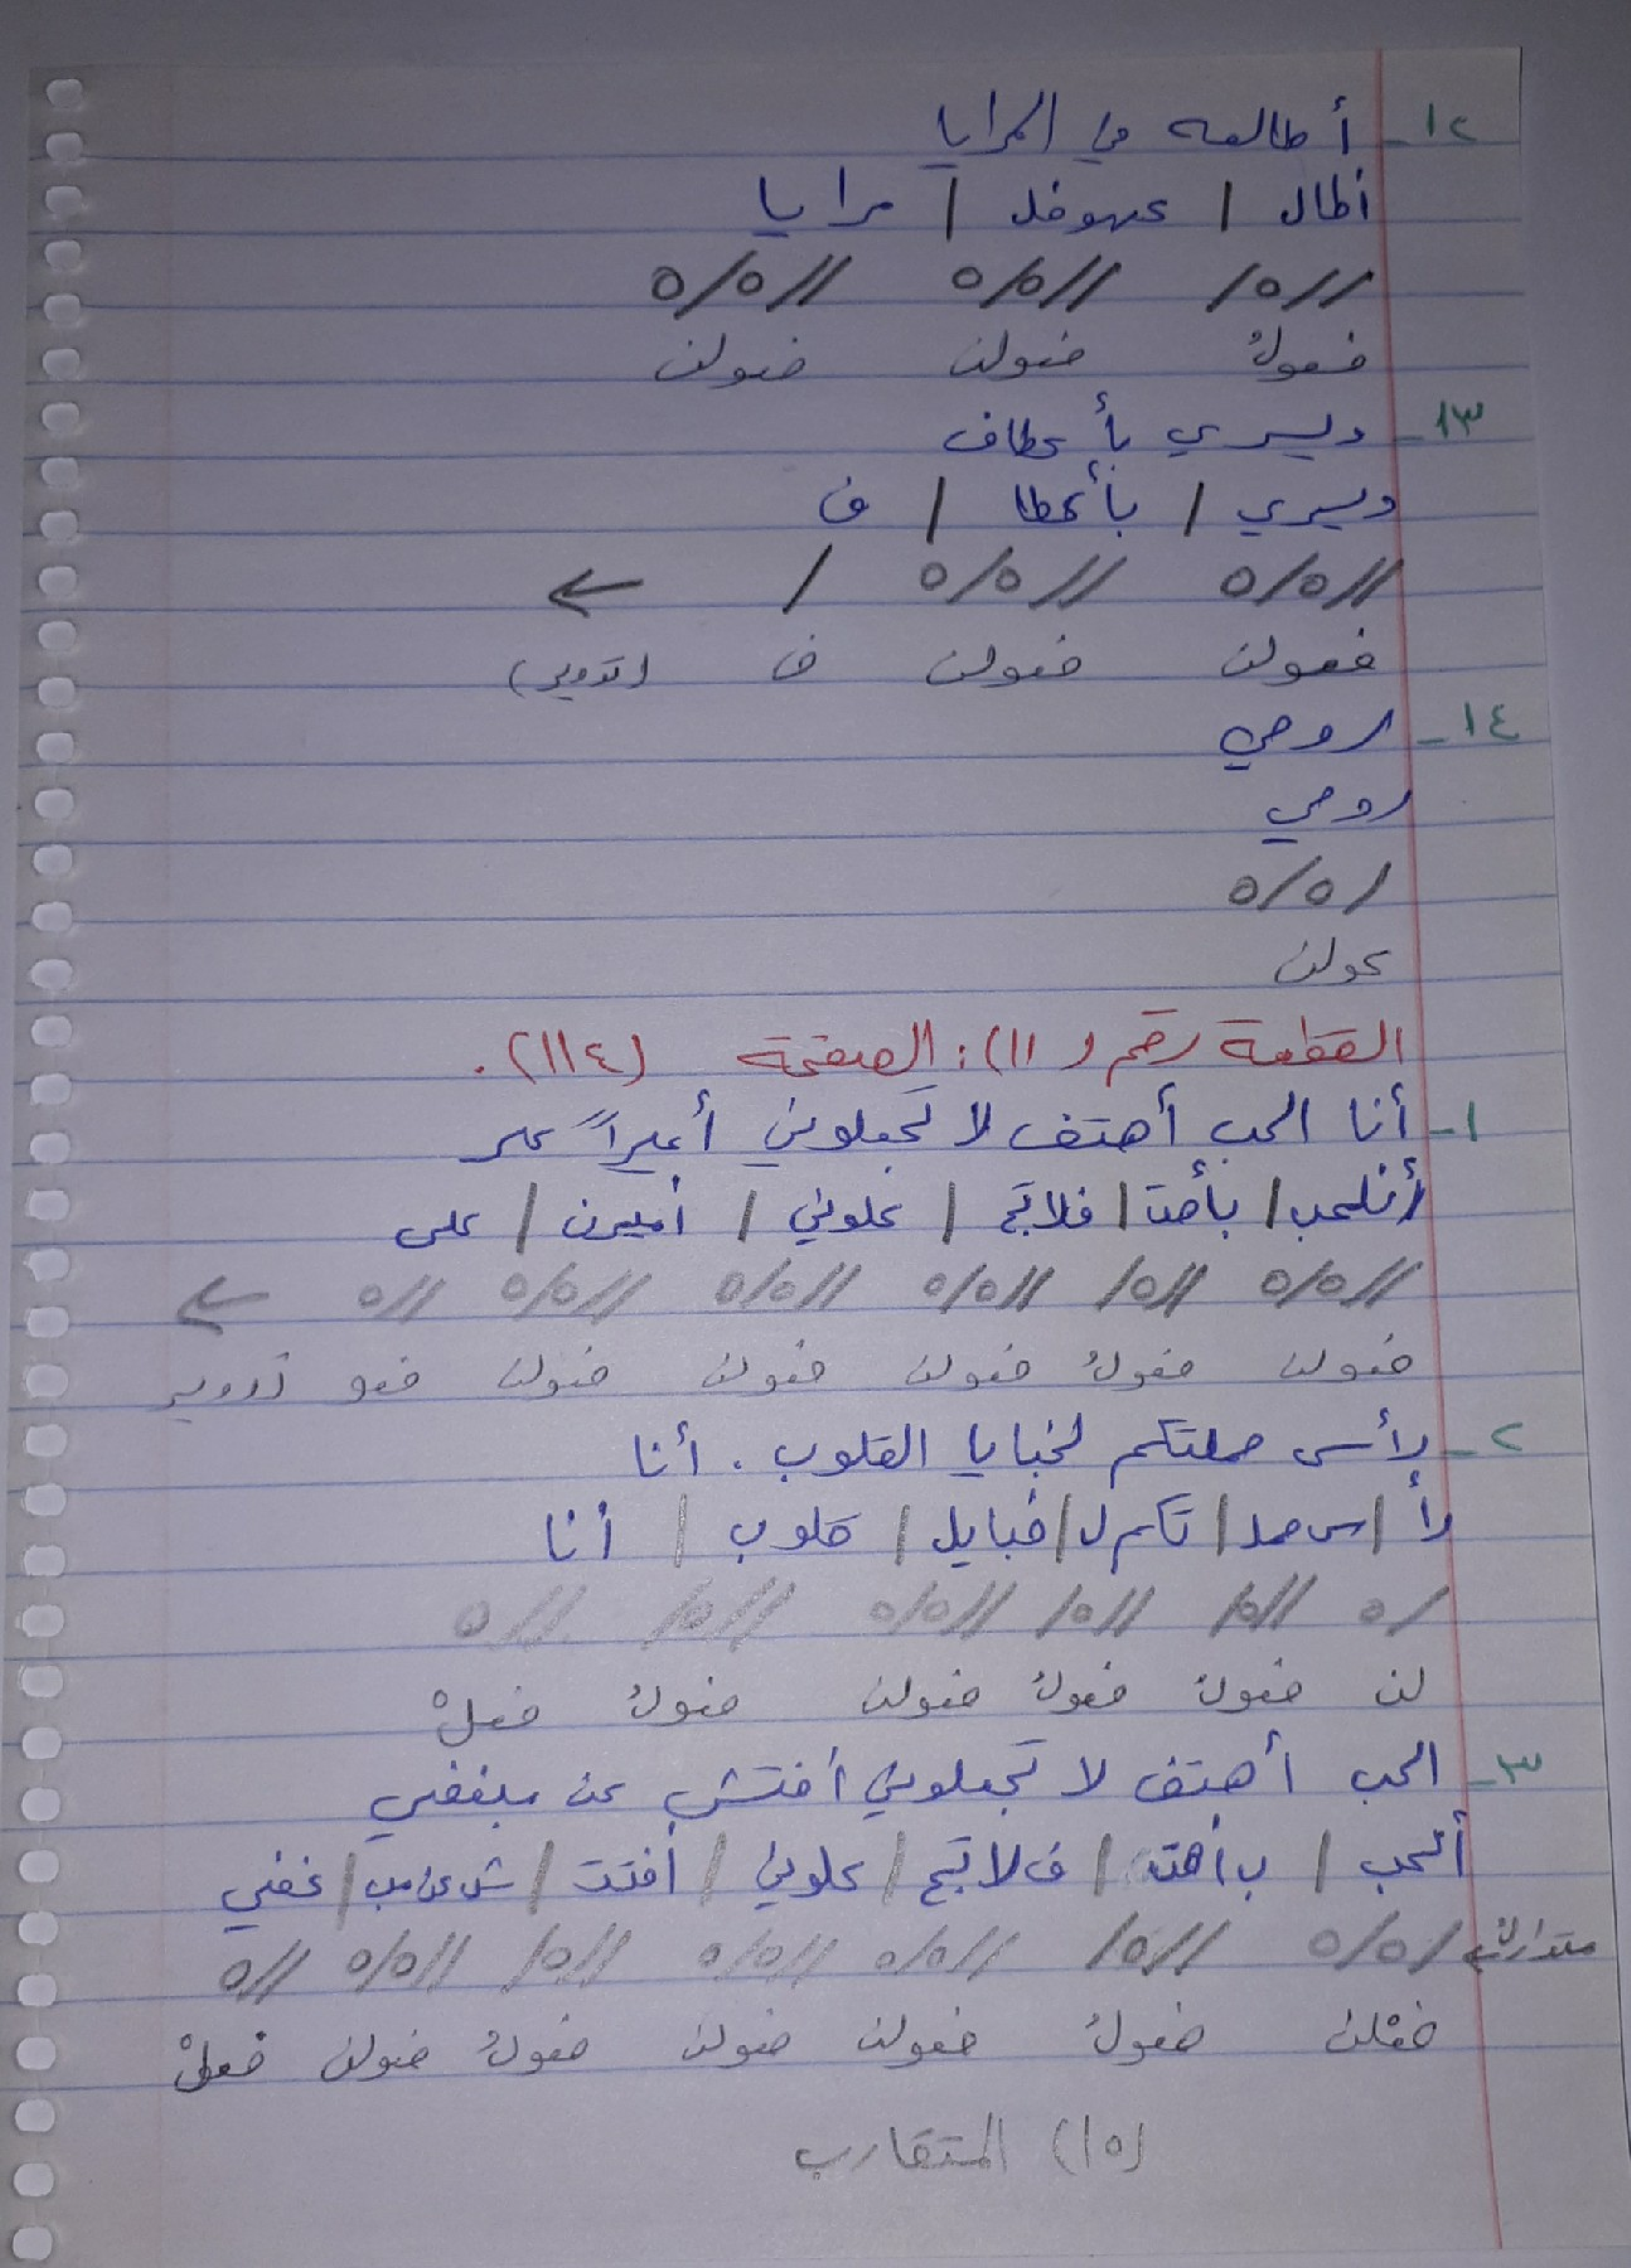 ١٢- أطالعه في المرايا
أطال / عهوفل / مرايا
//ه/ //ه/ه //ه/ه
فعولُ فعولن فعولن
١٣- ويسري بأعطاف
ويسري / بأعطا / ف
//ه/ه //ه/ه / ←
فعولن فعولن ف (تدوير)
١٤- روحي
روحي
/ه/ه
عولن
القطعة رقم (١١): الصفحة (١١٤).
١- أنا الحب أهتف لا تجعلوني أميراً على
أنلحب / بأهت / فلاتج / علوني / أميرن / على
//ه/ه //ه/ //ه/ه //ه/ه //ه/ه //ه ←
فعولن فعولُ فعولن فعولن فعولن فعو تدوير
٢- رأسى حملتكم لخبايا القلوب. أنا
رأ / سى حمل / تكم ل / خبايل / قلوب / أنا
/ه //ه/ //ه/ //ه/ه //ه/ //ه
لن فعولُ فعولُ فعولن فعولُ فعلْ
٣- الحب أهتف لا تجعلوني أفتش عن مبغضي
ألحب / ب أهت / ف لا تج / علوني / أفتت / ش عن مب / غضي
متدارك ← /ه/ه //ه/ //ه/ه //ه/ه //ه/ //ه/ه //ه
فعْلن فعولُ فعولن فعولن فعولُ فعولن فعلْ
(١٥) المتقارب